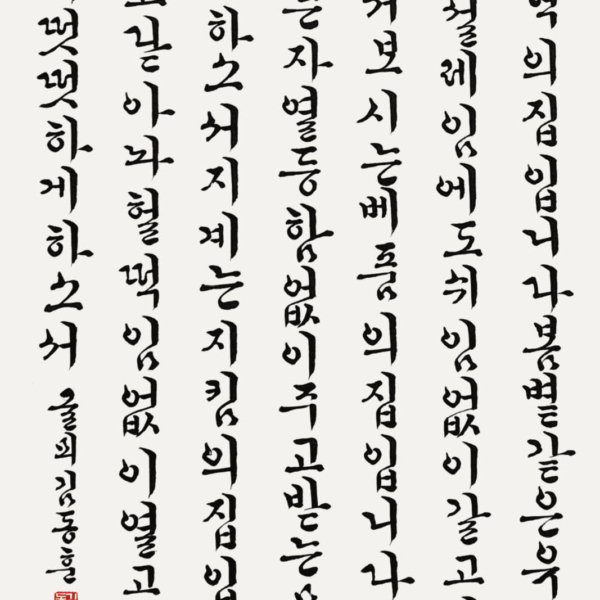 의집입니다봄볕같은우
설레임에도쉬임없이갈고
보시는베풂의집입니다
자열등함없이주고받는
하소서지계는지킴의집입
헐떡임없이열고
떳떳하게하소서 김동훈